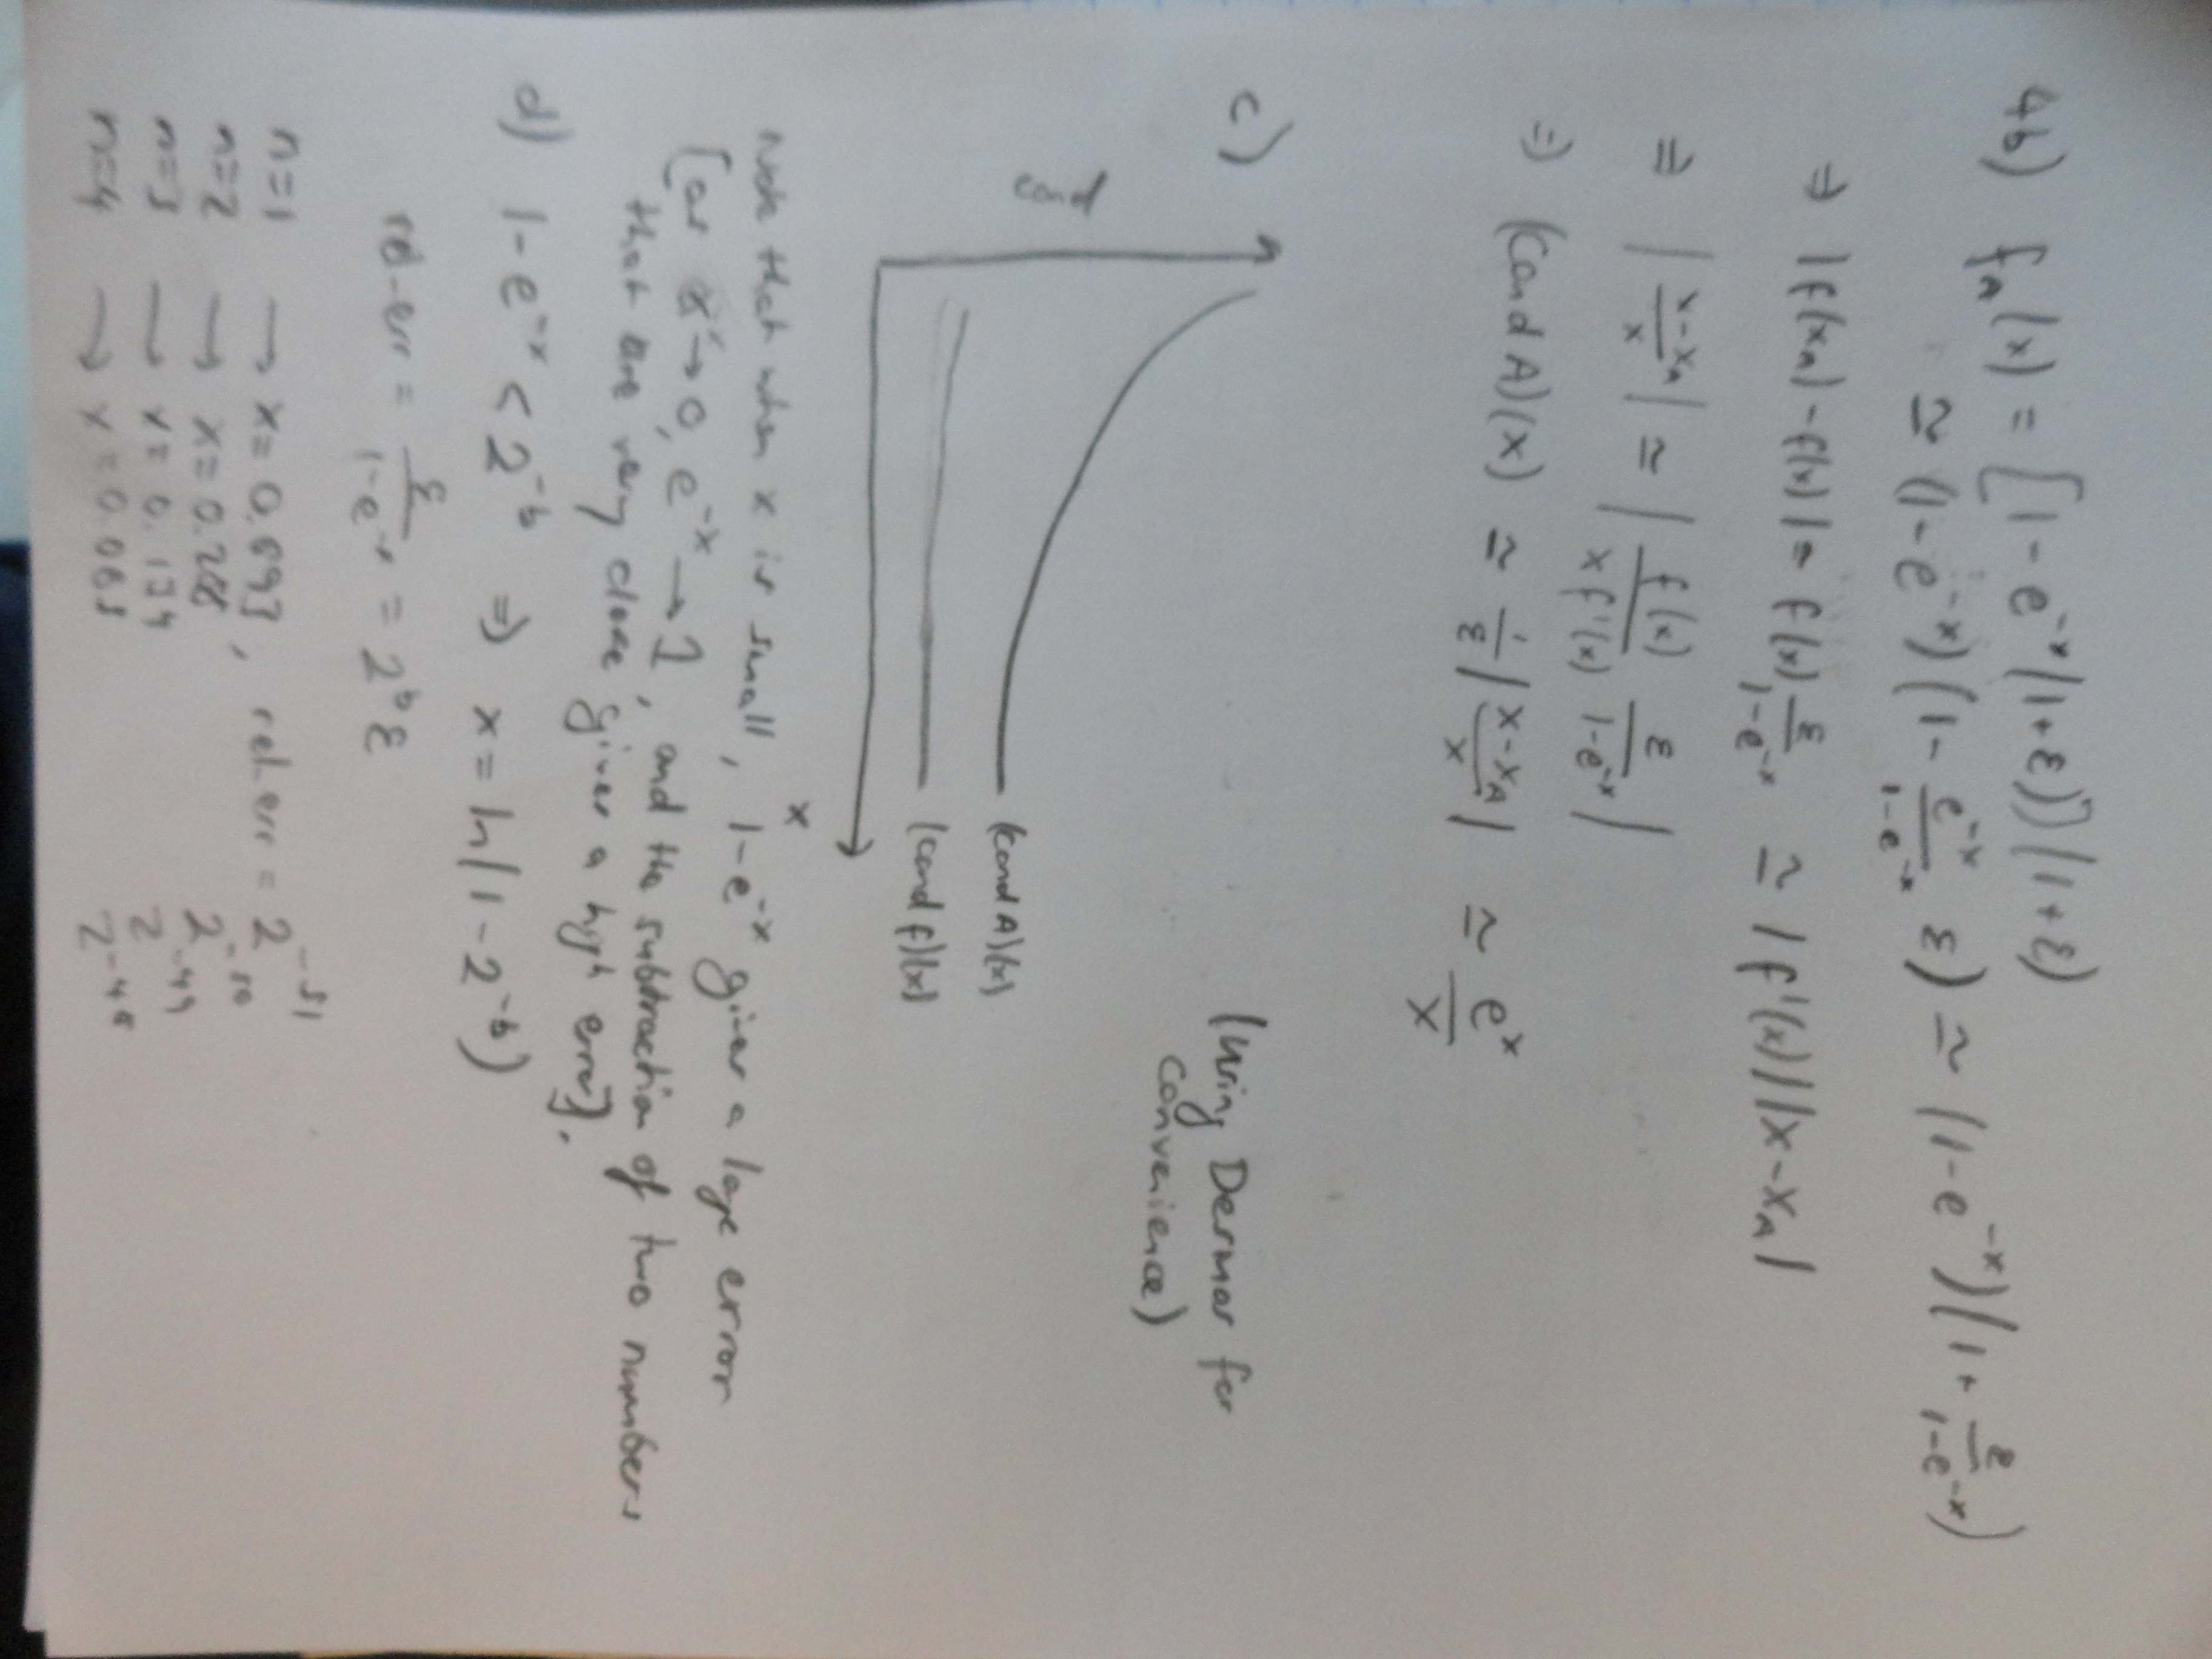 4b) fA(x) = [1 - e^-x(1+ε)](1+ε)
≃ (1-e^-x)(1 - e^-x/(1-e^-x) ε) ≃ (1-e^-x)(1+ ε/(1-e^-x))
⇒ |f(xA) - f(x)| = f(x) ε/(1-e^-x) ≃ |f'(x)||x-xA|
⇒ |(x-xA)/x| ≃ |f(x)/(x f'(x)) ε/(1-e^-x)|
⇒ (cond A)(x) ≃ 1/ε |(x-xA)/x| ≃ e^x/x
(using Desmos for
convenience)
c)
(cond A)(x)
(cond f)(x)
x
Note that when x is small, 1-e^-x gives a large error
[as x→0, e^-x→1, and the subtraction of two numbers
that are very close gives a high error].
d) 1-e^-x < 2^-b ⇒ x = ln(1-2^-b)
rel-err = ε/(1-e^-x) = 2^b ε
n=1 → x = 0.693, rel.err = 2^-51
n=2 → x = 0.288 2^-50
n=3 → x = 0.134 2^-49
n=4 → x = 0.065 2^-48